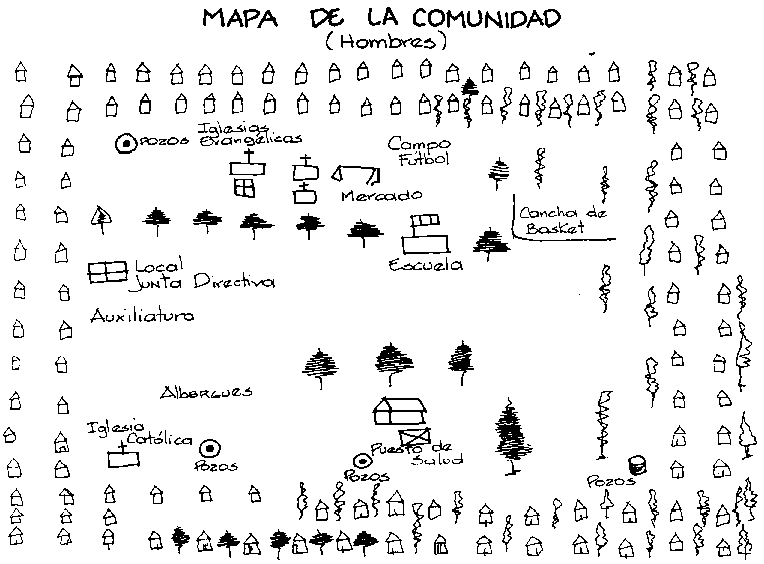 MAPA DE LA COMUNIDAD
(Hombres)
Pozos
Iglesias
Evangélicas
Campo
Fútbol
Mercado
Cancha de
Basket
Escuela
Local
Junta Directiva
Auxiliatura
Albergues
Iglesia
Católica
Pozos
Puesto de
Salud
Pozos
Pozos